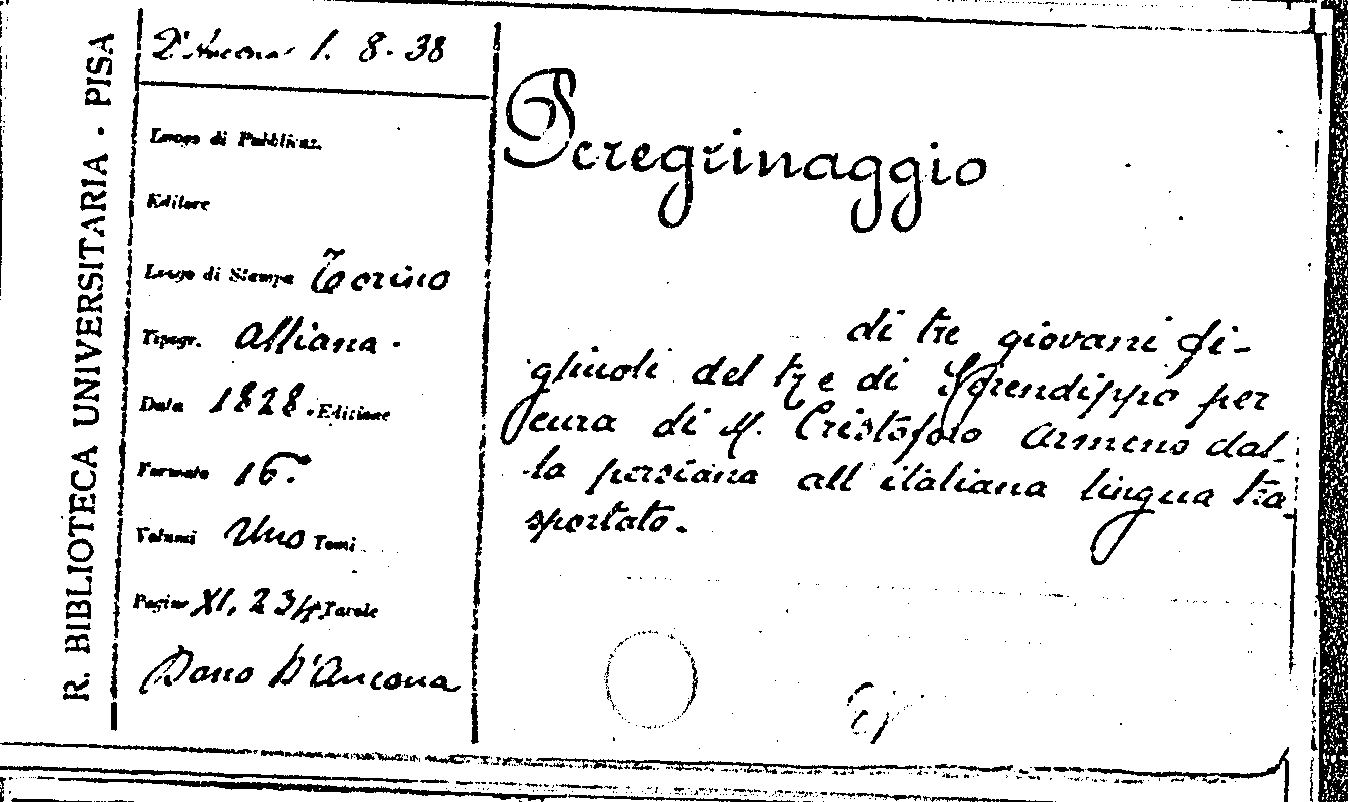 R. BIBLIOTECA UNIVERSITARIA - PISA
D'Ancona 1. 8. 38
Luogo di Pubblicaz.
Editore
Luogo di Stampa Torino
Tipogr. Alliana.
Data 1828. Edizione
Formato 16.°
Volumi Uno Tomi
Pagine XI, 234 Tavole
Dono D'Ancona
Peregrinaggio
di tre giovani fi-
gliuoli del re di Serendippo per
cura di M. Cristoforo Armeno dal-
la persiana all'italiana lingua tra-
sportato.